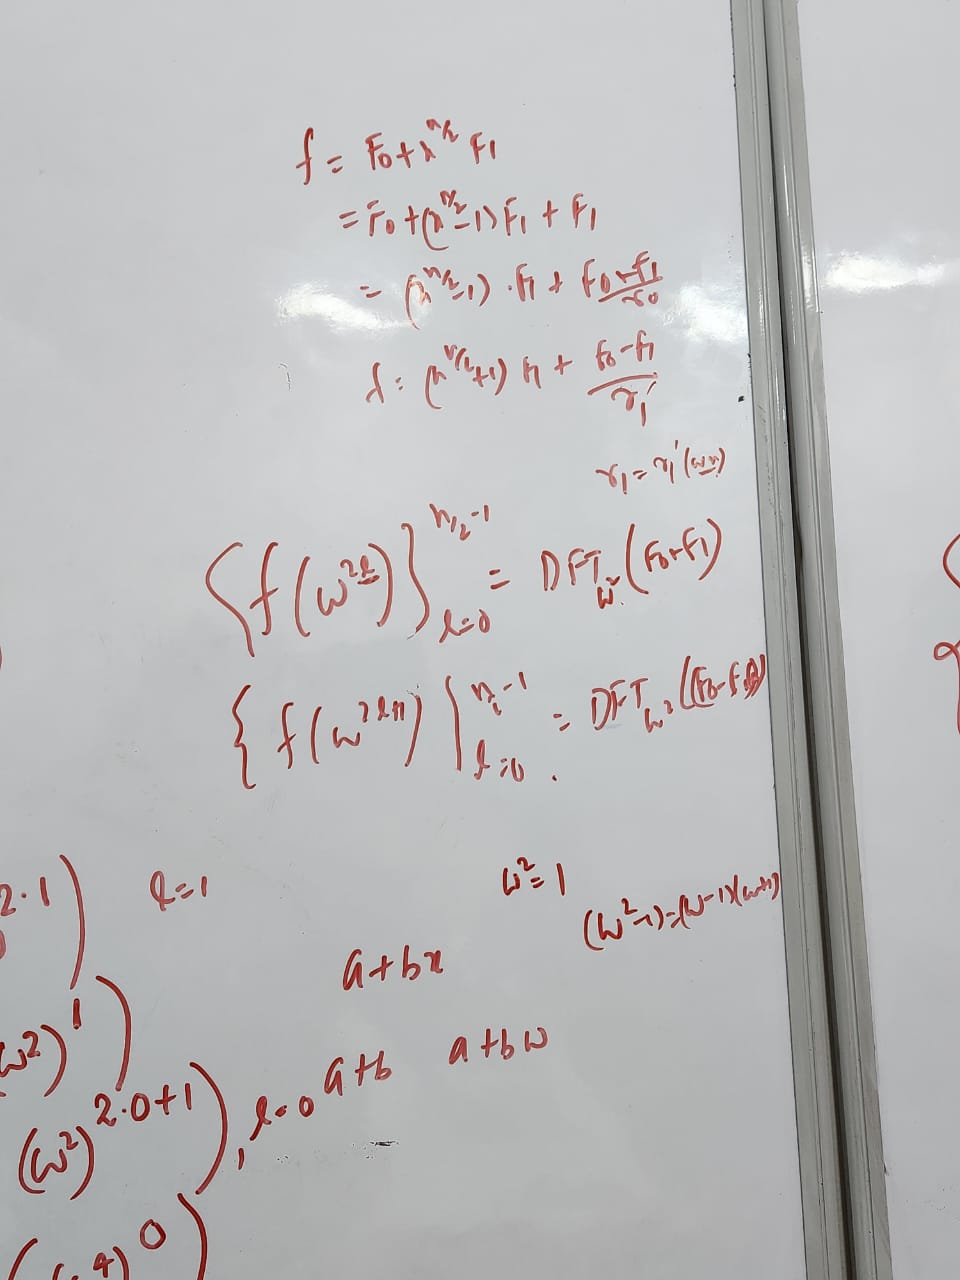 f = F₀ + x^{n/2} F₁
= F₀ + (x^{n/2} - 1) F₁ + F₁
= (x^{n/2} - 1) · F₁ + F₀ + F₁
r₀
f = (x^{n/2} + 1) F₁ + F₀ - F₁
r₁'
r₁ = r₁'(ωx)
{f(ω^{2l})}_{l=0}^{n/2-1} = DFT_{ω²}(F₀+F₁)
{f(ω^{2l+1})}_{l=0}^{n/2-1} = DFT_{ω²}
2·1) l=1
ω² = 1
(ω²-1) = (ω-1)(ω+1)
a + bx
ω²)¹)
a + b a + bω
(ω²)^{2·0+1}), l=0
4)⁰)